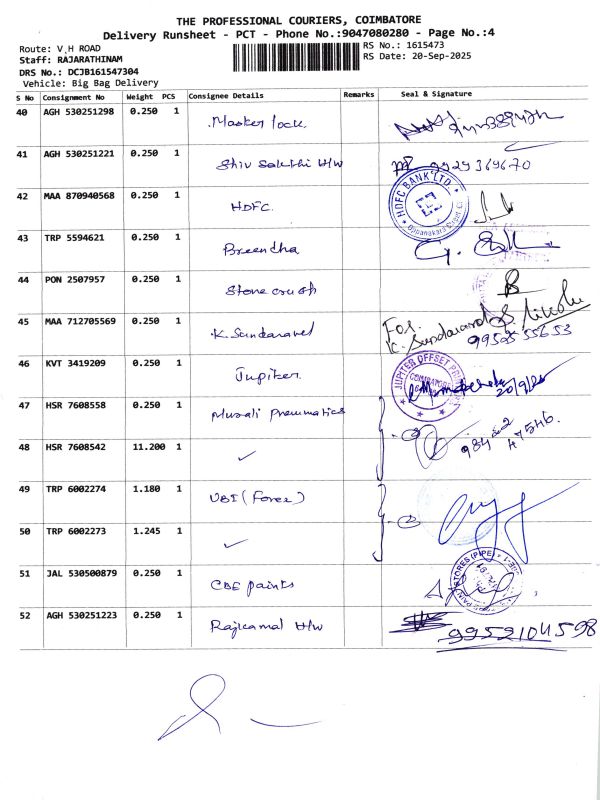 THE PROFESSIONAL COURIERS, COIMBATORE
Delivery Runsheet - PCT - Phone No.:9047080280 - Page No.:4
Route: V.H ROAD
RS No.: 1615473
Staff: RAJARATHINAM
RS Date: 20-Sep-2025
DRS No.: DCJB161547304
Vehicle: Big Bag Delivery
S No Consignment No Weight PCS Consignee Details Remarks Seal & Signature
40 AGH 530251298 0.250 1 Master lock
41 AGH 530251221 0.250 1 Shiv Sakthi H/W
42 MAA 870940568 0.250 1 HDFC. HDFC BANK LTD
43 TRP 5594621 0.250 1
44 PON 2507957 0.250 1 Stone crush
45 MAA 712705569 0.250 1 K. Sundaravel For. K. Sundaravel
99525 55653
46 KVT 3419209 0.250 1 Jupiter. JUPITER OFFSET COIMBATORE 20/9/25
47 HSR 7608558 0.250 1 Murali pneumatics 2
48 HSR 7608542 11.200 1 ✓ 98422 47546
49 TRP 6002274 1.180 1 UBI (Forex) 2
50 TRP 6002273 1.245 1 ✓
51 JAL 530500879 0.250 1 CBE paints STORES (PIPE)
52 AGH 530251223 0.250 1 Rajkamal H/W 9952104598